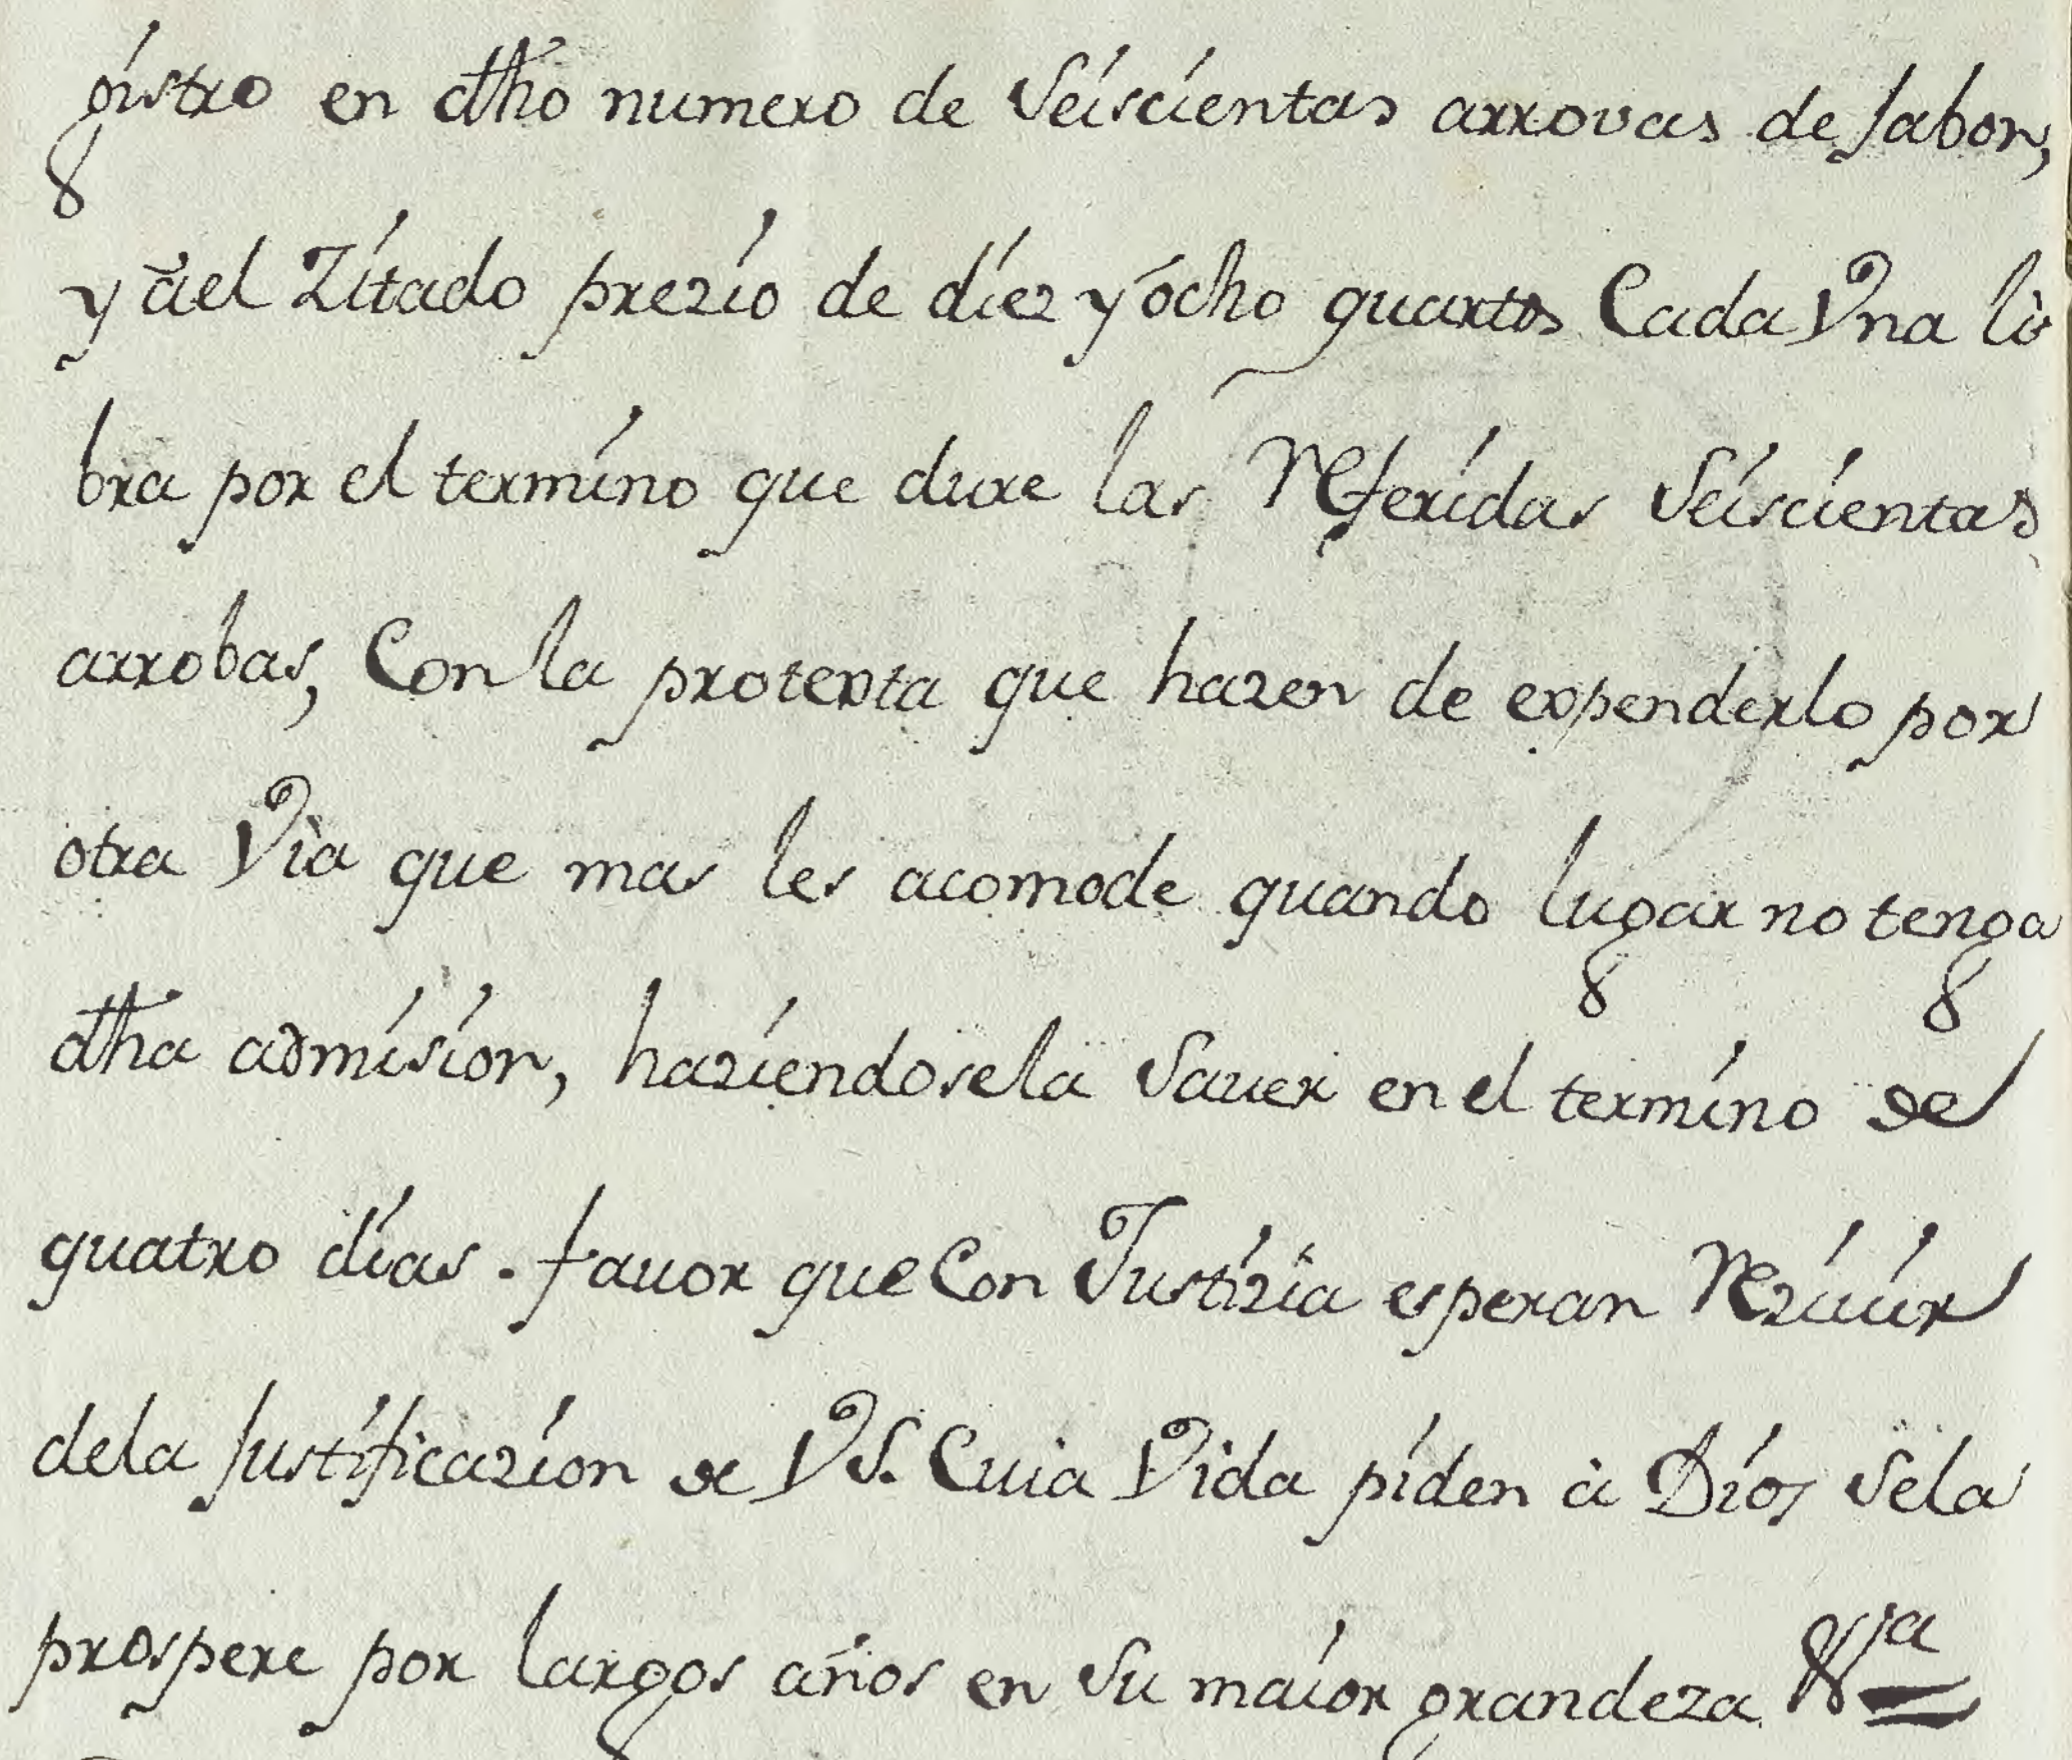 gistro en dho numero de Seiscientas arrovas de Jabon,
y àel Zitado prezio de diez y ócho quartos Cada Vna li
bra por el termino que dure las Referidas Seiscientas
arrobas, Con la protexta que hazen de expenderlo por
otra Vià que mas les acomode quando lugar no tenga
dha admision, haziendosela Sauer en el termino de
quatro dias. fauor que Con Justizia esperan Reziuir
dela Justificazion de VS. Cuia Vida piden à Dios Sela
prospere por largos años en Su maior grandeza.